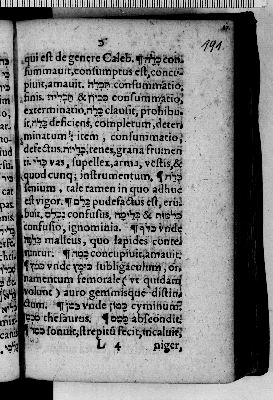 כ 191.
qui est de genere Caleb. ¶ כָּלָה con-
summauit, consumptus est, concu-
piuit, amauit. תִּכְלָה consummatio,
finis. תַּכְלִית & consummatio,
exterminatio, כָּלָא clausit, prohibu-
it, כָּלָה deficiens, completum, deter-
minatum: item, consummatio,
defectus. renes, grana frumen
ti. כְּלִי vas, supellex, arma, vestis, &
quod cunq; instrumentum. ¶
senium, tale tamen in quo adhuc
est vigor. ¶ pudefactus est, eru-
buit. confusus, כְּלִמָּה &
confusio, ignominia. ¶ vnde
malleus, quo lapides contel
luntur. ¶ concupiuit, amauit.
¶ vnde subligaculum, or-
namentum femorale (vt quidam
volunt) auro gemmisque distin-
ctum. ¶ vnde כַּמֹּן cyminum.
¶ thesaurus. ¶ abscondit.
¶ כמר sonuit, strepitū fecit, incaluit,
L 4 niger,